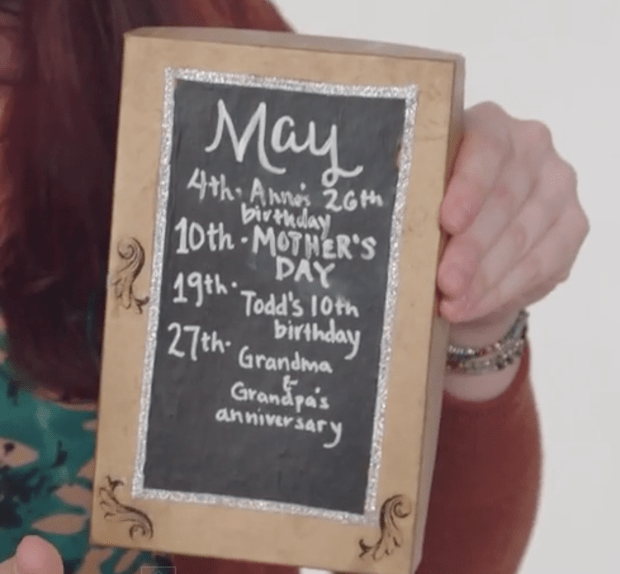 May
4th. Anne's 26th
birthday
10th - MOTHER'S
DAY
19th.
Todd's 10th
birthday
27th.
Grandma
&
Grandpa's
anniversary